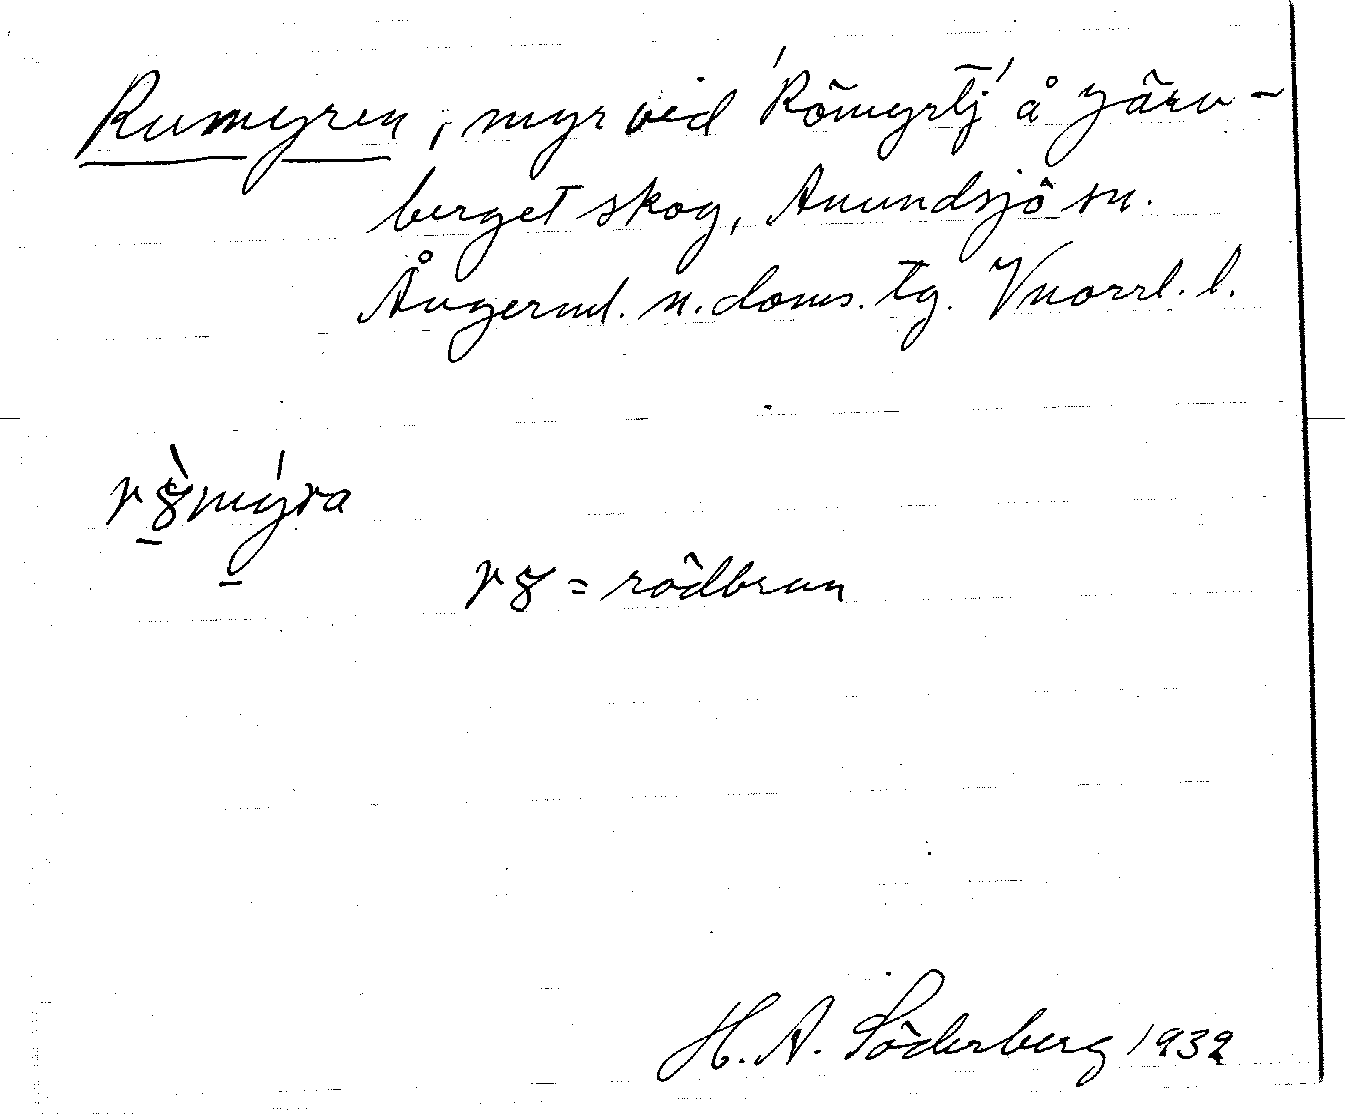 Rumyren, myr vid 'Römyrtj' å Järv-
berget skog, Anundsjö sn.
Ångerml. n. doms. tg. Vnorrl. l.
myra
= rödbrun
H. A. Söderberg 1932